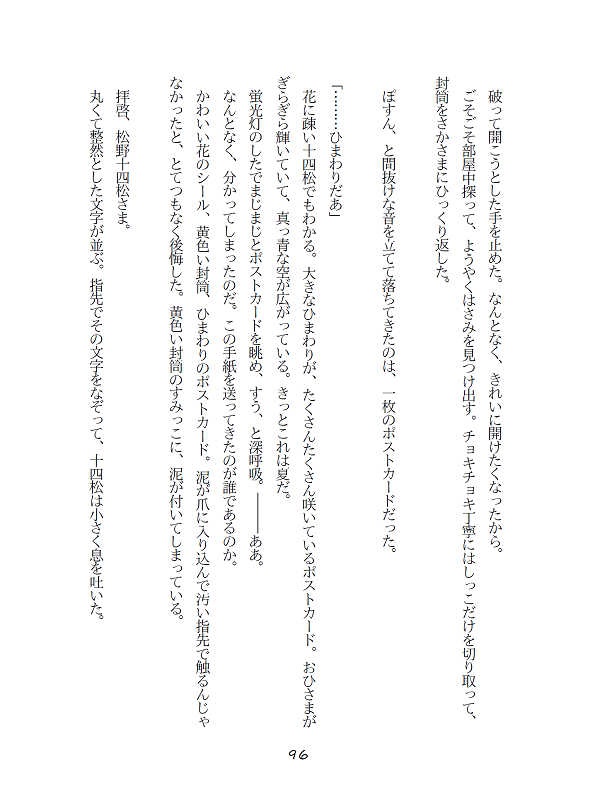 破って開こうとした手を止めた。なんとなく、きれいに開けたくなったから。
ごそごそ部屋中探って、ようやくはさみを見つけ出す。チョキチョキ丁寧にはしっこだけを切り取って、
封筒をさかさまにひっくり返した。
ぽすん、と間抜けな音を立てて落ちてきたのは、一枚のポストカードだった。
「………ひまわりだあ」
花に疎い十四松でもわかる。大きなひまわりが、たくさんたくさん咲いているポストカード。おひさまが
ぎらぎら輝いていて、真っ青な空が広がっている。きっとこれは夏だ。
蛍光灯のしたでまじまじとポストカードを眺め、すう、と深呼吸。――ああ。
なんとなく、分かってしまったのだ。この手紙を送ってきたのが誰であるのか。
かわいい花のシール、黄色い封筒、ひまわりのポストカード。泥が爪に入り込んで汚い指先で触るんじゃ
なかったと、とてつもなく後悔した。黄色い封筒のすみっこに、泥が付いてしまっている。
拝啓、松野十四松さま。
丸くて整然とした文字が並ぶ。指先でその文字をなぞって、十四松は小さく息を吐いた。
96